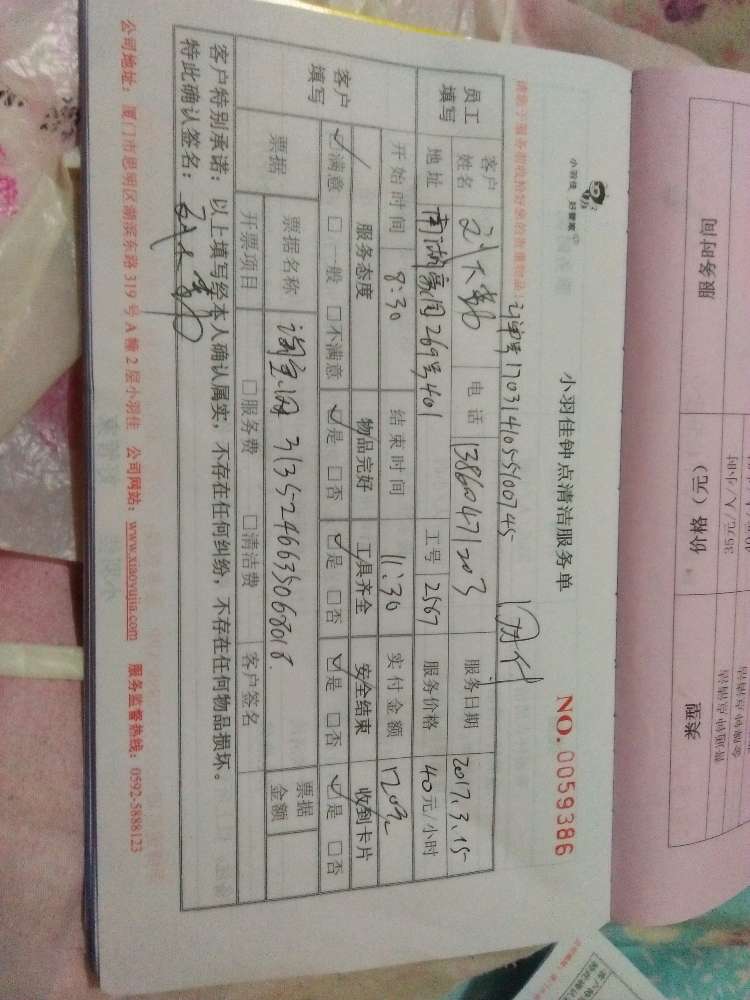 小羽佳 好管家
小羽佳钟点清洁服务单 NO.0059386
请您于服务前收拾好您的贵重物品！ 订单号1703141055100745
员工填写 客户姓名 电话 13860471203 服务日期 2017.3.15
地址 南湖豪园269号401 工号 2567 服务价格 40元/小时
开始时间 8:30 结束时间 11:30 实付金额 120元
客户填写 服务态度 物品完好 工具齐全 安全结束 收到卡片
☑满意 □一般 □不满意 ☑是 □否 ☑是 □否 ☑是 □否 ☑是 □否
票据 票据名称 淘宝网 3135246635068018 票据金额
开票项目 □服务费 □清洁费 客户签名
客户特别承诺：以上填写经本人确认属实，不存在任何纠纷，不存在任何物品损坏。
特此确认签名：
公司地址：厦门市思明区湖滨东路319号A幢2层小羽佳 公司网站：www.xiaoyujia.com 服务监督热线：0592-5888123
服务时间 价格（元） 类型
35元/人/小时 普通钟点清洁